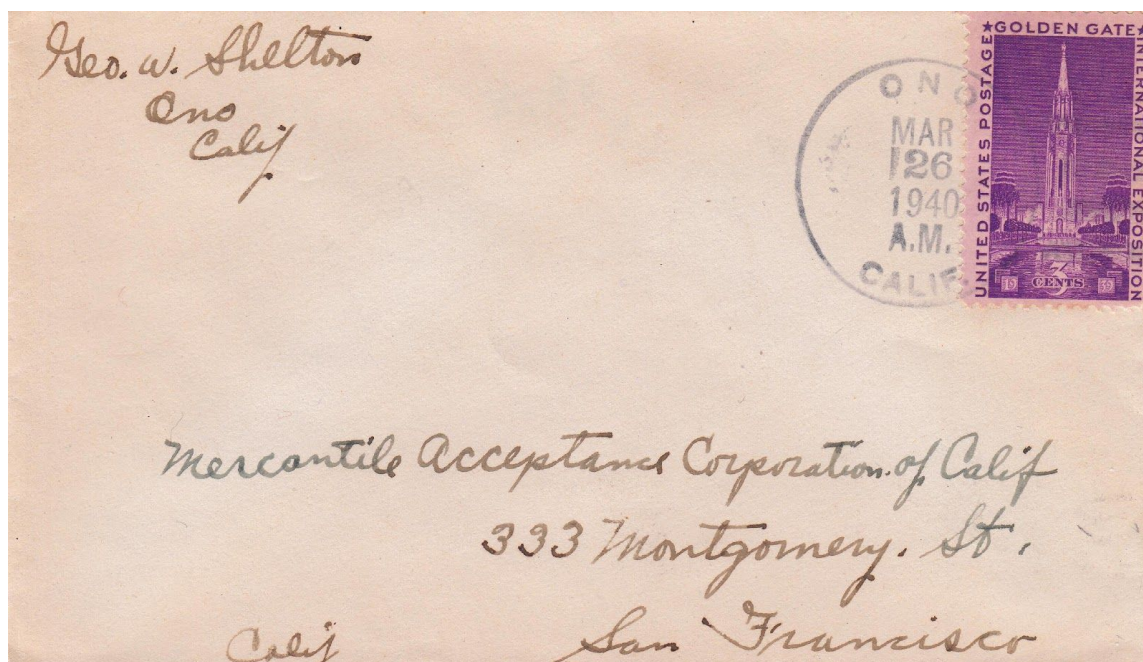 Geo. W. Shelton
Ono
Calif
ONO
MAR
26
1940
A.M.
CALIF.
★GOLDEN GATE★
UNITED STATES POSTAGE
INTERNATIONAL EXPOSITION
19 3 39
CENTS
Mercantile Acceptance Corporation of Calif
333 Montgomery. St.
San Francisco
Calif